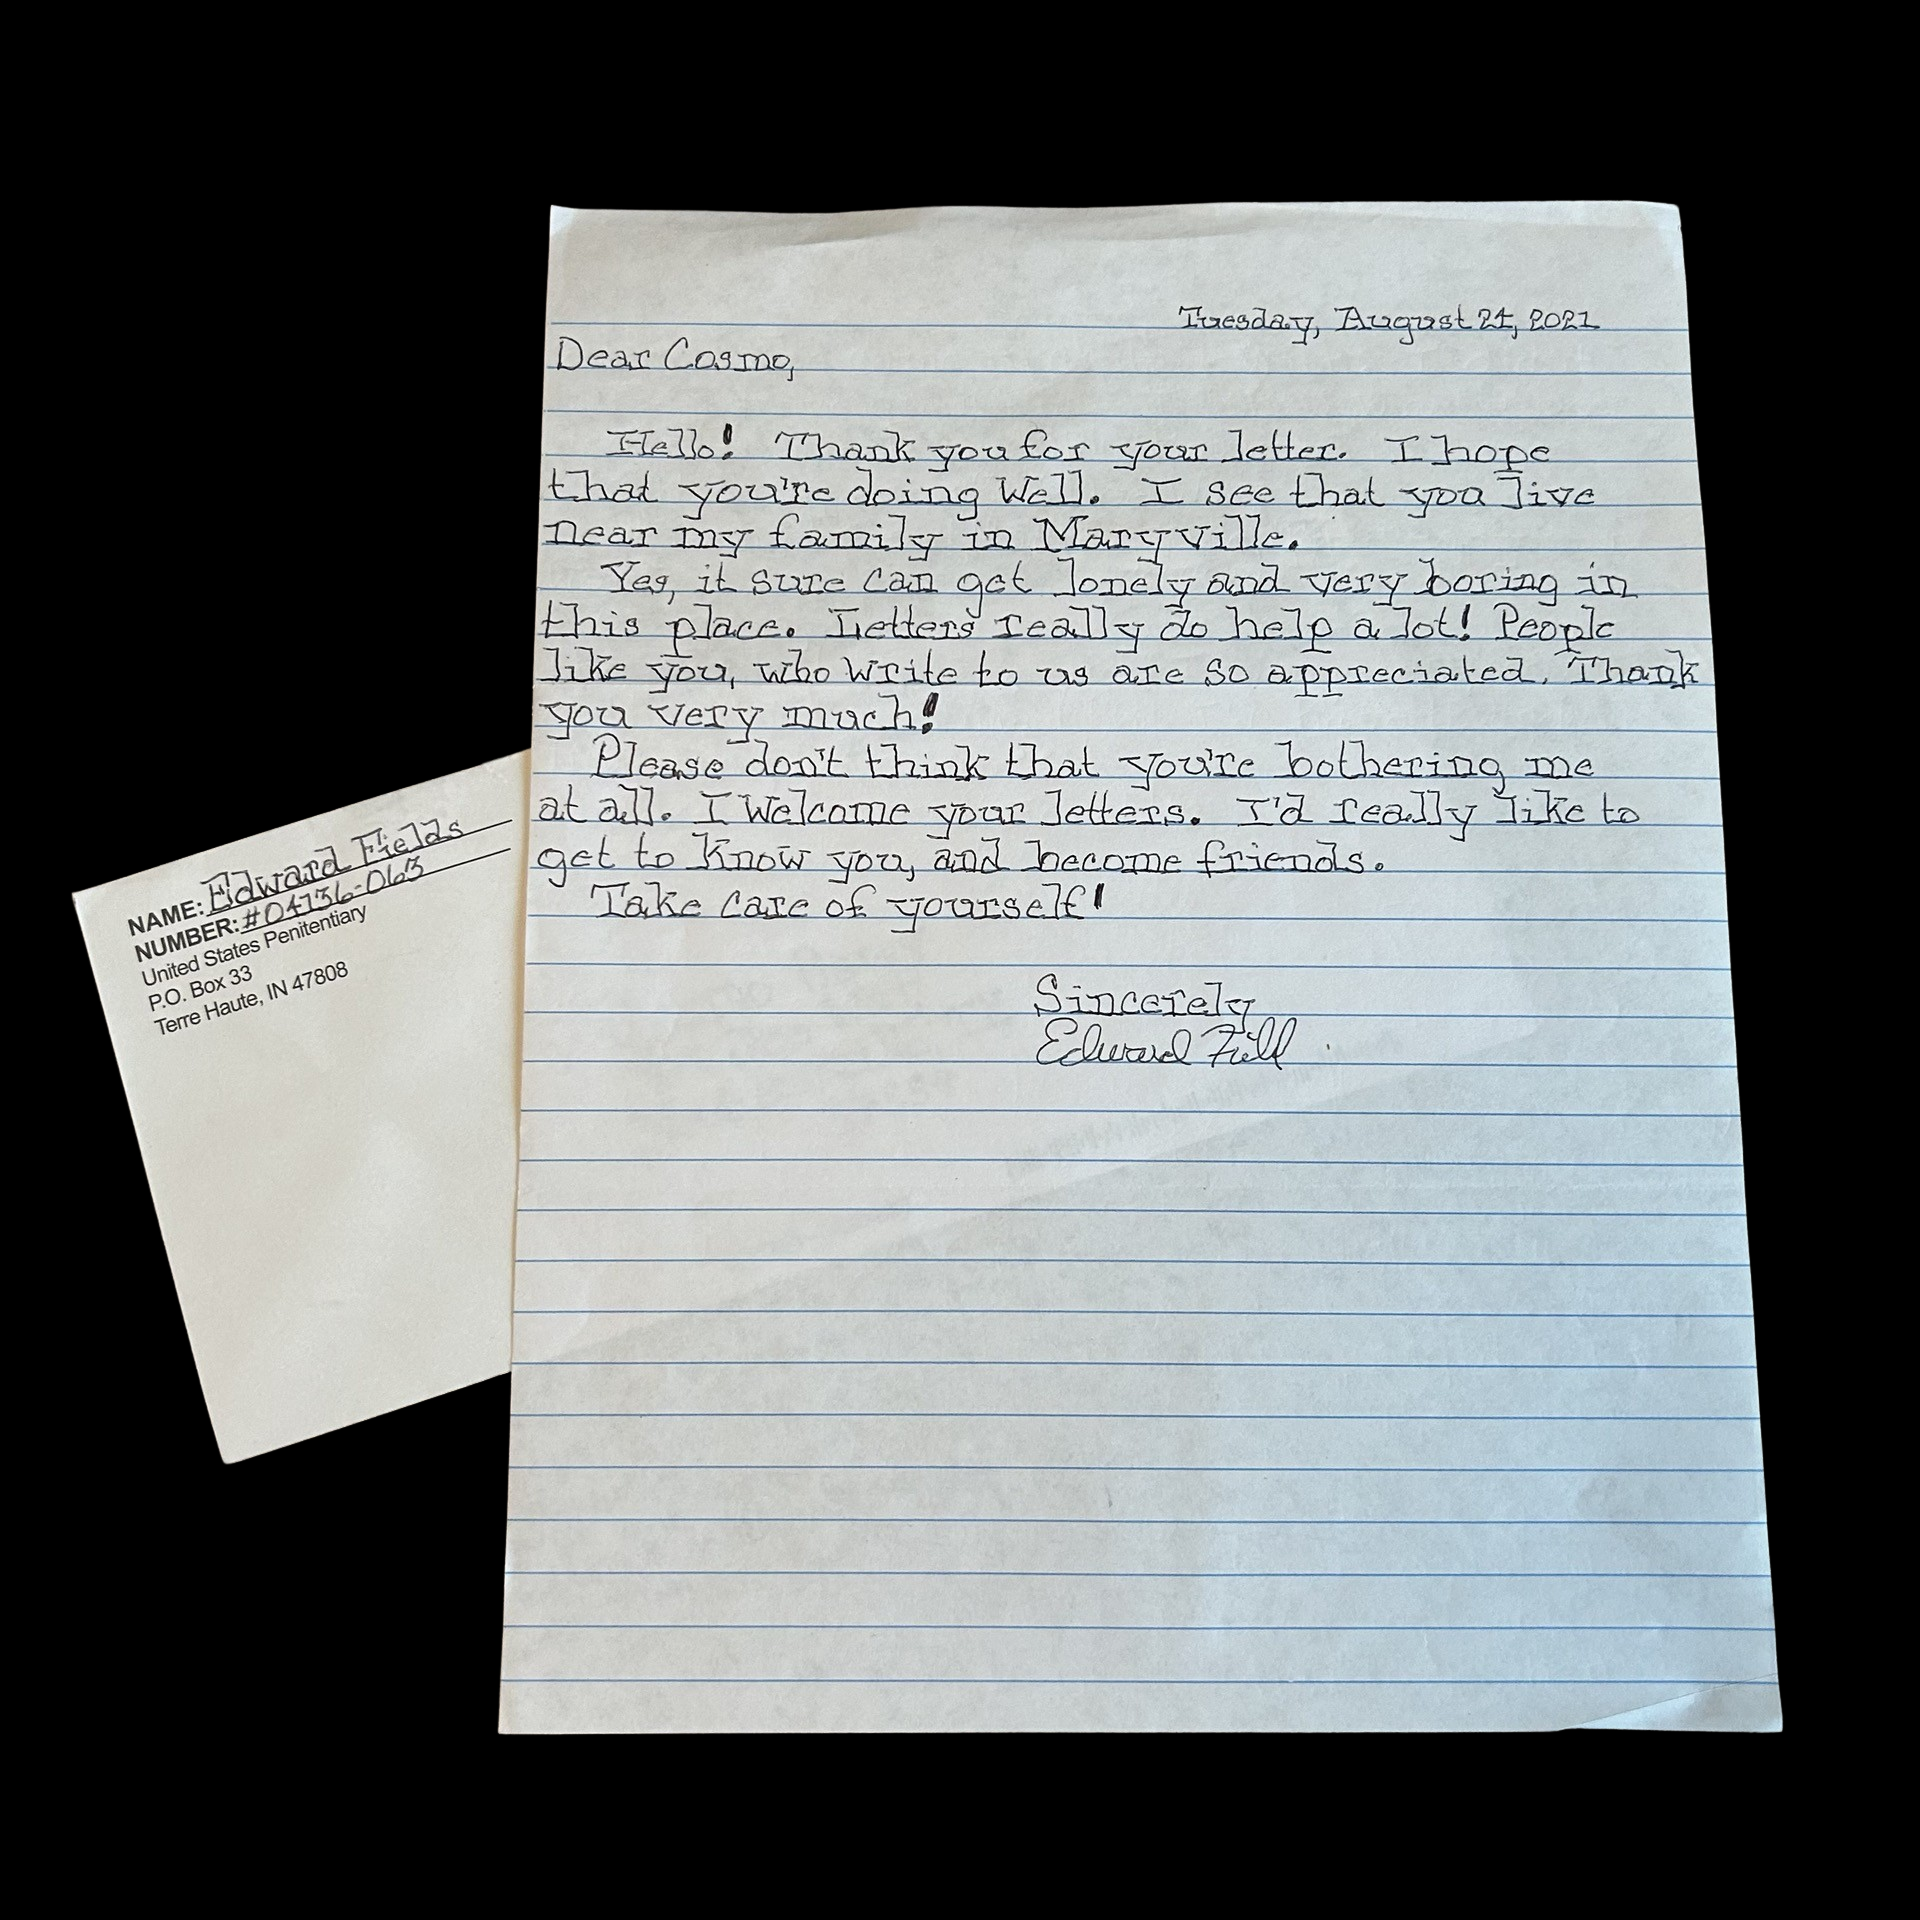 Tuesday, August 24, 2021
Dear Cosmo,
Hello! Thank you for your letter. I hope
that you're doing well. I see that you live
near my family in Maryville.
Yes, it sure can get lonely and very boring in
this place. Letters really do help a lot! People
like you, who write to us are so appreciated. Thank
you very much!
Please don't think that you're bothering me
at all. I welcome your letters. I'd really like to
get to know you, and become friends.
Take care of yourself!
Sincerely
Edward Fields
NAME: Edward Fields
NUMBER: #04136-063
United States Penitentiary
P.O. Box 33
Terre Haute, IN 47808